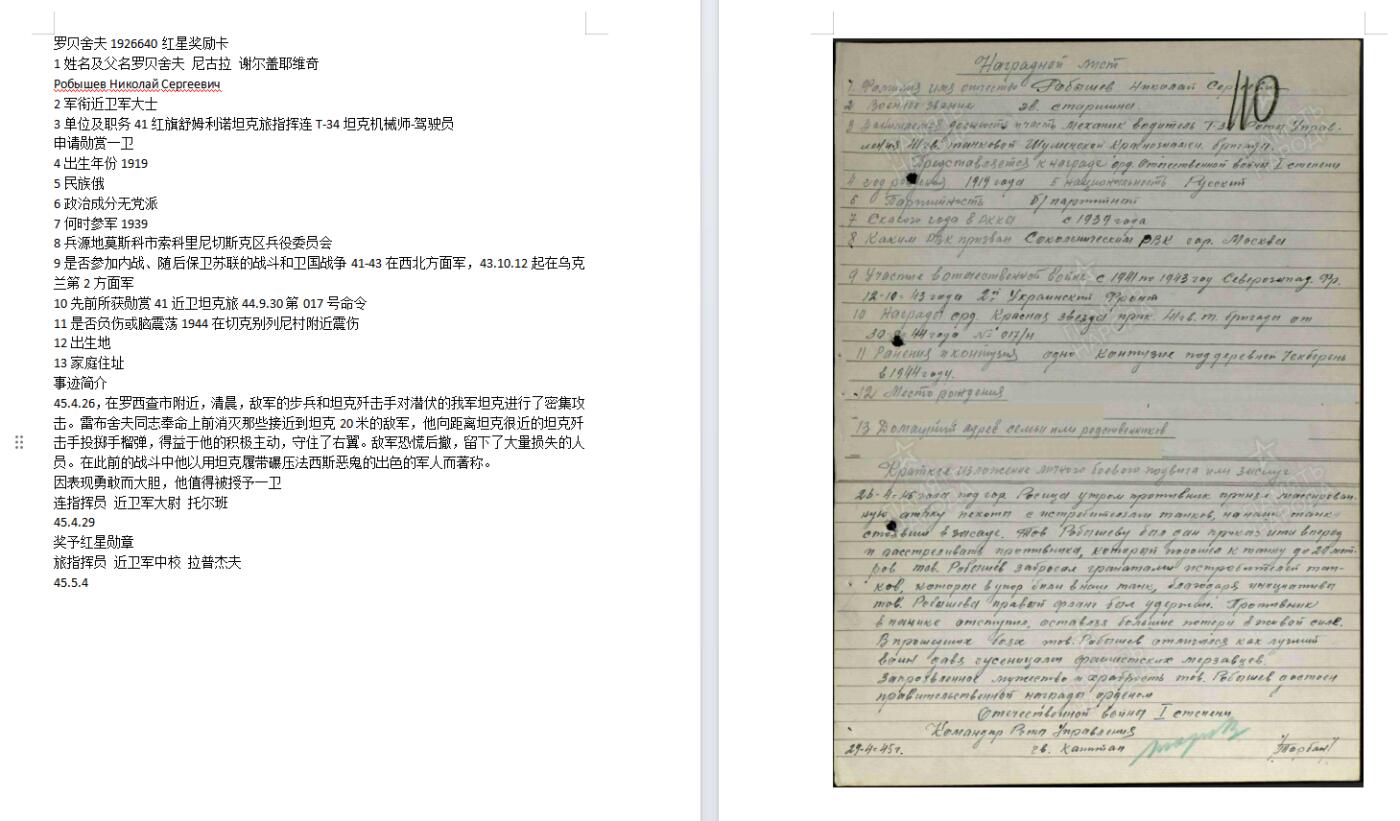 罗贝舍夫 1926640 红星奖励卡
1 姓名及父名罗贝舍夫 尼古拉 谢尔盖耶维奇
Робышев Николай Сергеевич
2 军衔近卫军大士
3 单位及职务 41 红旗舒姆利诺坦克旅指挥连 T-34 坦克机械师-驾驶员
申请勋赏一卫
4 出生年份 1919
5 民族俄
6 政治成分无党派
7 何时参军 1939
8 兵源地莫斯科市索科里尼切斯克区兵役委员会
9 是否参加内战、随后保卫苏联的战斗和卫国战争 41-43 在西北方面军，43.10.12 起在乌克
兰第 2 方面军
10 先前所获勋赏 41 近卫坦克旅 44.9.30 第 017 号命令
11 是否负伤或脑震荡 1944 在切克别列尼村附近震伤
12 出生地
13 家庭住址
事迹简介
45.4.26，在罗西查市附近，清晨，敌军的步兵和坦克歼击手对潜伏的我军坦克进行了密集攻
击。雷布舍夫同志奉命上前消灭那些接近到坦克 20 米的敌军，他向距离坦克很近的坦克歼
击手投掷手榴弹，得益于他的积极主动，守住了右翼。敌军恐慌后撤，留下了大量损失的人
员。在此前的战斗中他以用坦克履带碾压法西斯恶鬼的出色的军人而著称。
因表现勇敢而大胆，他值得被授予一卫
连指挥员 近卫军大尉 托尔班
45.4.29
奖予红星勋章
旅指挥员 近卫军中校 拉普杰夫
45.5.4
Наградной лист
110
1. Фамилия имя отчество Робышев Николай
2 Военное звание гв. старшина.
3 Занимаемая должность и часть механик водитель Т-34 Роты Управ-
ления 41 гв. танковой Шумлинской Краснознамен. бригады.
Представляется к награде орд. Отечественной войны I степени
4 год рождения 1919 года 5 национальность Русский
6 Партийность б/партийный
7 С какого года в РККА с 1939 года
8 Каким РВК призван Сокольническим РВК гор. Москвы
9 Участие в отечественной войне с 1941 по 1943 год Северозапад. Фр.
12-10-43 года 2й Украинский Фронт
10 Награды орд. Красная звезда прик. 41 гв. т. бригады от
44 года № 017/н
11 Ранения и контузия одна контузия под деревней
в 1944 году.
12 Место рождения
13 Домашний адрес семьи или родственников
Краткое изложение личного боевого подвига или заслуг
26-4-45 года под гор. Росица утром противник принял массирован-
ную атаку пехоты с истребителями танков, на наши танки
стоявшие в засаде. Тов Робышеву был дан приказ итти вперед
и расстреливать противника, который подошел к танку до 20 мет-
ров тов. Робышев забросал гранатами истребителей тан-
ков, которые в упор били в наш танк, благодаря инициативы
тов. Робышева правый фланг был удержан. Противник
в панике отступил, оставляя большие потери в живой силе.
В прошедших боях тов. Робышев отличался как лучший
воин давя гусеницами фашистских мерзавцев.
За проявленное мужество и храбрость тов. Робышев достоен
правительственной награды орденом
Отечественной войны I степени
Командир Роты Управления
29-4-45г. гв. Капитан /Торбан/